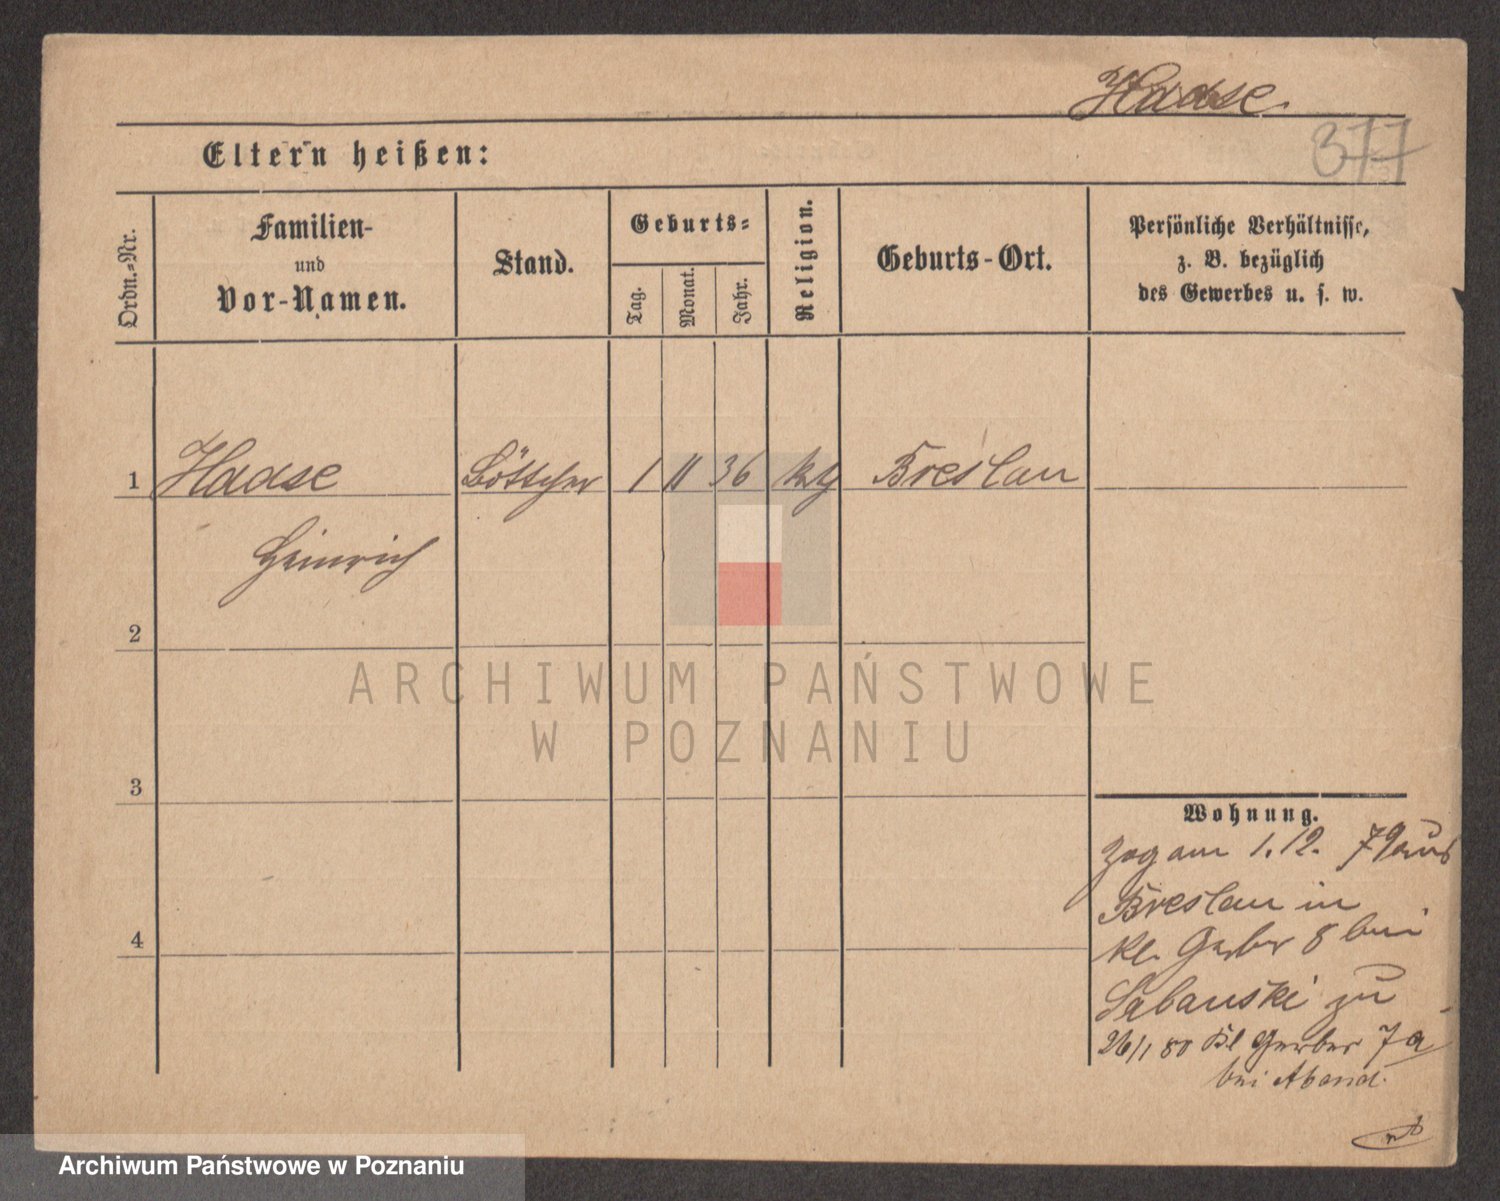 Haase.
377
Eltern heißen:
Ordn.-Nr.
Familien-
und
Vor-Namen.
Stand.
Geburts-
Tag.
Monat.
Jahr.
Religion.
Geburts-Ort.
Persönliche Verhältnisse,
z. B. bezüglich
des Gewerbes u. s. w.
1 Haase Böttcher 1 11 36 kth Breslau
Heinrich
2
3
4
Wohnung.
Zog am 1.12. 79 aus
Breslau in
kl. Gerber 8 bei
Labanski zu
26/1 80 Kl Gerber 7a
bei Abend.
ARCHIWUM PAŃSTWOWE
W POZNANIU
Archiwum Państwowe w Poznaniu